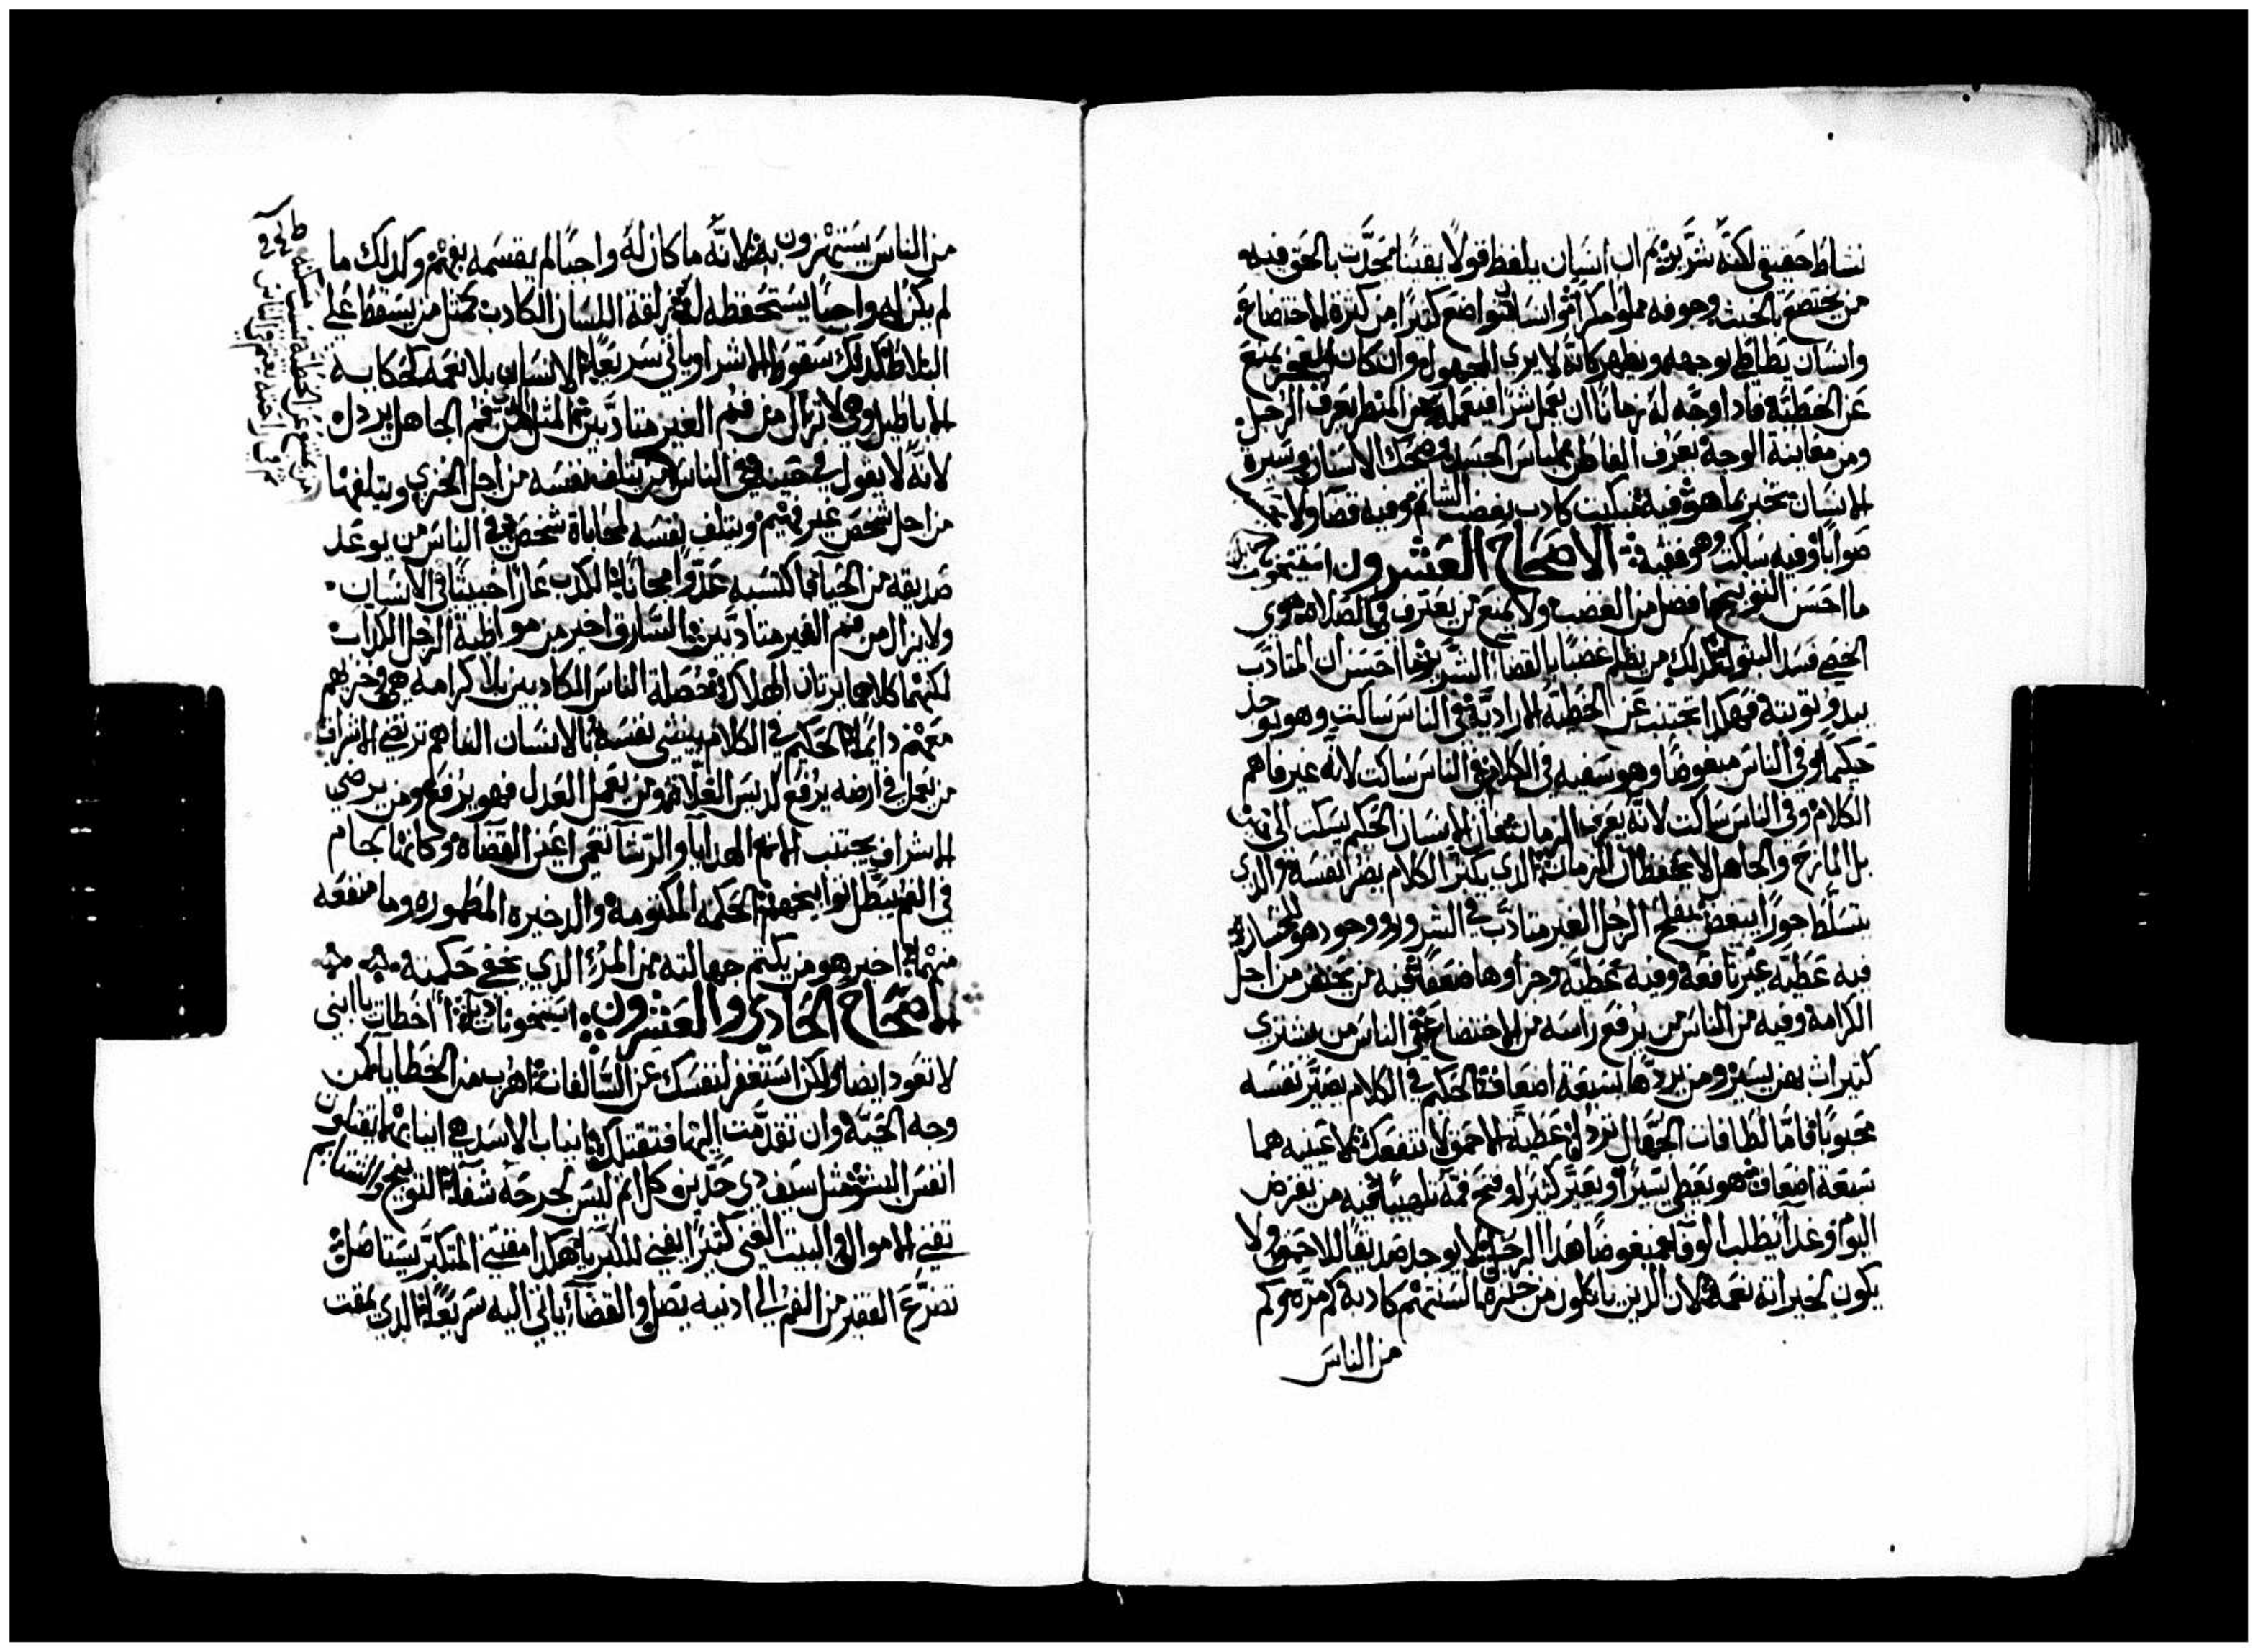 نشاط حقيقي لكنه شرير ثم ان انسان يلفظ قولاً يقيناً يحدث بالحق فيه
من يختضع بالخبث وجوفه مملو مكراً وانسان يتواضع كثيراً من كثرة الاختضاع
وانسان يطاطي بوجهه ويظهر كانه لا يرى المجهول وان كان العجز يمنع
عن الخطية فاذا وجد له زماناً ان يعمل شراً فيعمله من المنظر يعرف الرجل
ومن مقابلة الوجه يعرف الفاطن لباس الجسد وضحك الاسنان وسيرة
الانسان تخبر بما هو فيه تبكيت كاذب بغضب الشاتم وفيه قضا ولا
صواباً وفيه ساكت وهو فقيه الاصحاح العشرون استيخون
ما احسن التوبيخ افضل من الغضب ولا يمنع من يعترف في الصلاة هوى
الخصي فسد البتولة كذلك من يظلم غصباً بالقضاء الشرير ما احسن ان المتادب
يبدو توبته فهكذا تجتنب عن الخطية الارادية في الناس ساكت وهو يوجد
حكيماً وفي الناس مبغوضاً وهو سفيه في الكلام في الناس ساكت لانه غير فاهم
الكلام وفي الناس ساكت لانه يعرف الزمان الانسان الحكيم يسكت الى زمان
بل المازح والجاهل لا يحفظان الزمان الذي يكثر الكلام يضر نفسه والذي
يتسلط جوراً يبغض يفلح الرجل الغير متادب في الشرور ووجوده للخسارة
فيه عطية غير نافعة وفيه عطية وجزاوها ضعفاً فيه من يحتقر من اجل
الكرامة وفيه من الناس من يرفع راسه من الاختضاع في الناس من يشتري
كثيرات بثمن يسير ومن يردها بسبعة اضعاف الحكيم في الكلام يصير نفسه
محبوباً فاما لطافات الجهال تزدلق عطية الاحمق لا تنفعك لان عينيه هما
سبعة اضعاف هو يعطي يسيراً ويعير كثيراً وفتح فمه تلهيباً فيه من يقرض
اليوم وغداً يطلب الوفا مبغوضاً هذا الرجل لا يوجد صديقاً للاحمق ولا
يكون لخيراته نعمة لان الذين ياكلون من خبزه السنتهم كاذبة كم مرة وكم
من الناس
من الناس يستهزون به لانه ما كان له واجباً لم يقسمه بفهم وكذلك ما
لم يكن له واجباً يستحفظه له زلقة اللسان الكاذب كمثل من يسقط على
البلاط كذلك سقوط الاشرار ياتي سريعاً الانسان بلا نعمة كحكاية
الاباطيل وهي لا تزال من فم الغير متادبين المثل من فم الجاهل يرذل
لانه لا يقول في حينه في الناس من يتلف نفسه من اجل الخزي ويتلفها
من اجل شخص غير فهيم ويتلف نفسه لمحاباة شخص في الناس من يوعد
صديقه من الحيا فاكتسبه عدواً مجاناً الكذب عاراً خبيثاً في الانسان
ولا يزال من فم الغير متادبين السارق اخير من مواظبة الرجل الكذاب
لكنهما كلاهما يرثان الهلاك خصلة الناس الكاذبين بلا كرامة هي وخزيهم
معهم دايماً الحكيم في الكلام ينشي نفسه الانسان الفاهم ترتضي الاشراف
من يعمل في ارضه يرفع كديس الغلة ومن يعمل العدل فهو يرفع ومن يرضي
الاشراف يجتنب الاثم الهدايا والرشا تعمي اعين القضاة وكانها لجام
في الفم تبطل توابيخهم الحكمة المكتومة والذخيرة المطمورة وما منفعة
منهما اخير هو من يكتم جهالته من المرء الذي يخفي حكمته
الاصحاح الحادي والعشرون استيخونات اخطات يا ابني
لا تعود ايضاً ولكن استغفر لنفسك عن السالفات اهرب من الخطايا كمن
وجه الحية وان تقدمت اليها فتقتلك انياب الاسد هي انيابها تقتلون
انفس البشر مثل سيف ذي حدين كل اثم ليس لجرحه شفا التوبيخ والشتايم
تفني الاموال والبيت الغني كثيراً يفنى للكبريا هكذا مقتنى المتكبر يستاصل
تضرع الفقير من الفم الى اذنيه يصل والقضاء ياتي اليه سريعاً الذي يمقت